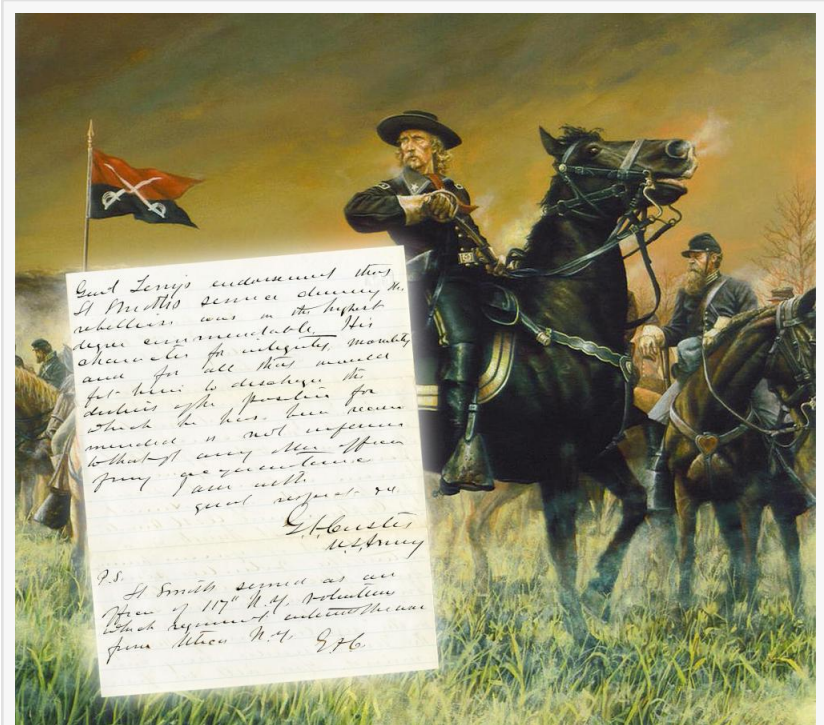 Genl Terry's endorsement that
Lt Smith's service during the
rebellion was in the highest
degree commendable. His
character for integrity, morality
and for all that would
fit him to discharge the
duties of the position for
which he has been recom
mended is not inferior
to that of any other officer
of my acquaintance
I am with
great respect &c
G.A. Custer
U.S. Army
P.S.
Lt Smith served as an
officer of 117" N.Y. volunteers
which regiment entered the war
from Utica N.Y. GAC.